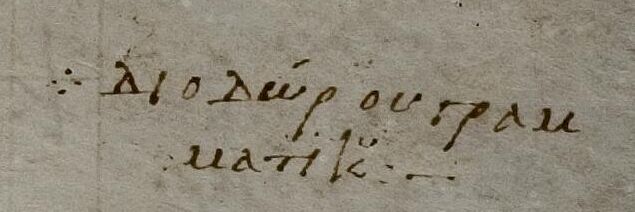 ⁘ Διοδώρου γραμ
ματικ̅:–